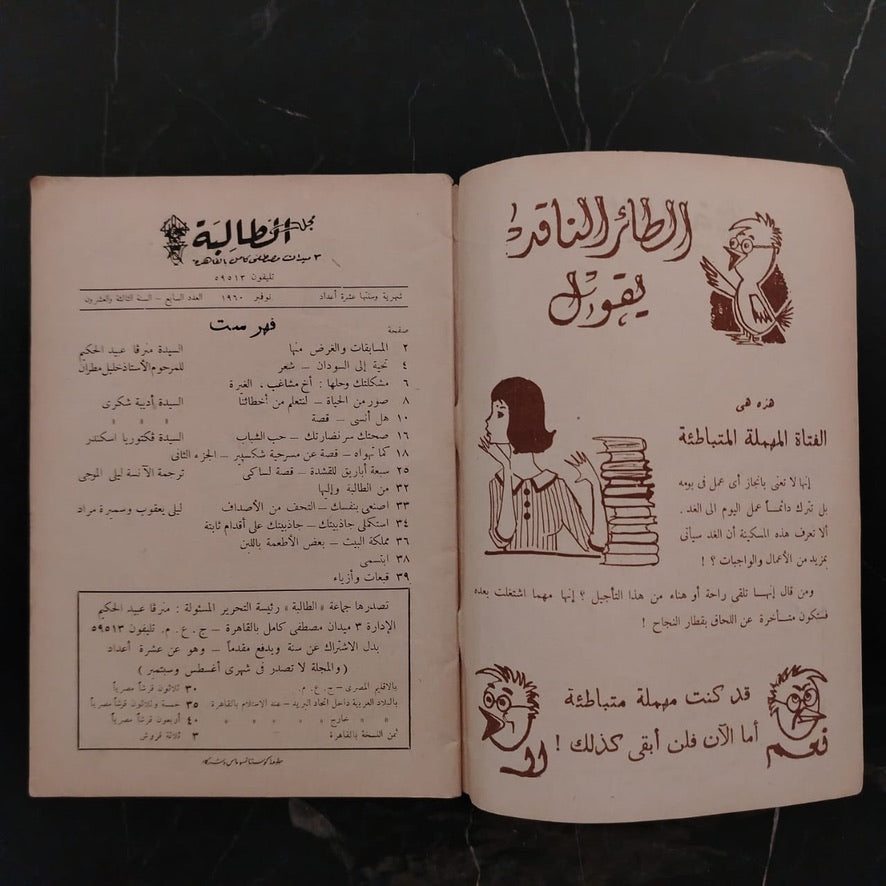 الطائر الناقد
يقول
هذه هى
الفتاة المهملة المتباطئة
إنها لا تعنى بانجاز أى عمل فى يومه
بل تترك دائماً عمل اليوم الى الغد .
ألا تعرف هذه المسكينة أن الغد سيأتى
بمزيد من الأعمال والواجبات ؟ !
ومن قال إنها تلقى راحة أو هناء من هذا التأجيل ؟ إنها مهما اشتغلت بعده
فستكون متأخرة عن اللحاق بقطار النجاح !
قد كنت مهملة متباطئة
أما الآن فلن أبقى كذلك !
نعم
لا
مجلة الطالبة
٣ ميدان مصطفى كامل بالقاهرة
تليفون ٥٩٥١٣
شهرية وسنتها عشرة أعداد نوفمبر ١٩٦٠ العدد السابع – السنة الثالثة والعشرون
فهرست
صفحة
٢ المسابقات والغرض منها السيدة مرقا عبيد الحكيم
٤ تحية إلى السودان – شعر للمرحوم الأستاذ خليل مطران
٦ مشكلتك وحلها : أخ مشاغب ، الغيرة
٨ صور من الحياة – لنتعلم من أخطائنا السيدة أديبة شكرى
١٠ هل أنسى – قصة » » »
١٦ صحتك سر نضارتك – حب الشباب السيدة فكتوريا اسكندر
١٨ كما تهواه – قصة عن مسرحية شكسبير – الجزء الثانى
٢٥ سبعة أباريق للقشدة – قصة لساكى ترجمة الآنسة ليلى الموجى
٣٢ من الطالبة وإليها
٣٣ اصنعى بنفسك – التحف من الأصداف ليلى يعقوب وسميرة مراد
٣٤ استكملى جاذبيتك – جاذبيتك على أقدام ثابتة
٣٦ مملكة البيت – بعض الأطعمة باللبن
٣٨ ابتسمى
٣٩ قبعات وأزياء
تصدرها جماعة « الطالبة » رئيسة التحرير المسئولة : مرقا عبيد الحكيم
الإدارة ٣ ميدان مصطفى كامل بالقاهرة – ج . ع . م . تليفون ٥٩٥١٣
بدل الاشتراك عن سنة ويدفع مقدماً – وهو عن عشرة أعداد
( والمجلة لا تصدر فى شهرى أغسطس وسبتمبر )
بالاقليم المصرى – ج . ع . م . ٣٠ ثلاثون قرشاً مصرياً
بالبلاد العربية داخل اتحاد البريد – عند الاستلام بالقاهرة ٣٥ خمسة وثلاثون قرشاً مصرياً
» » خارج » » » » » ٤٠ أربعون قرشاً مصرياً
ثمن النسخة بالقاهرة ٣ ثلاثة قروش